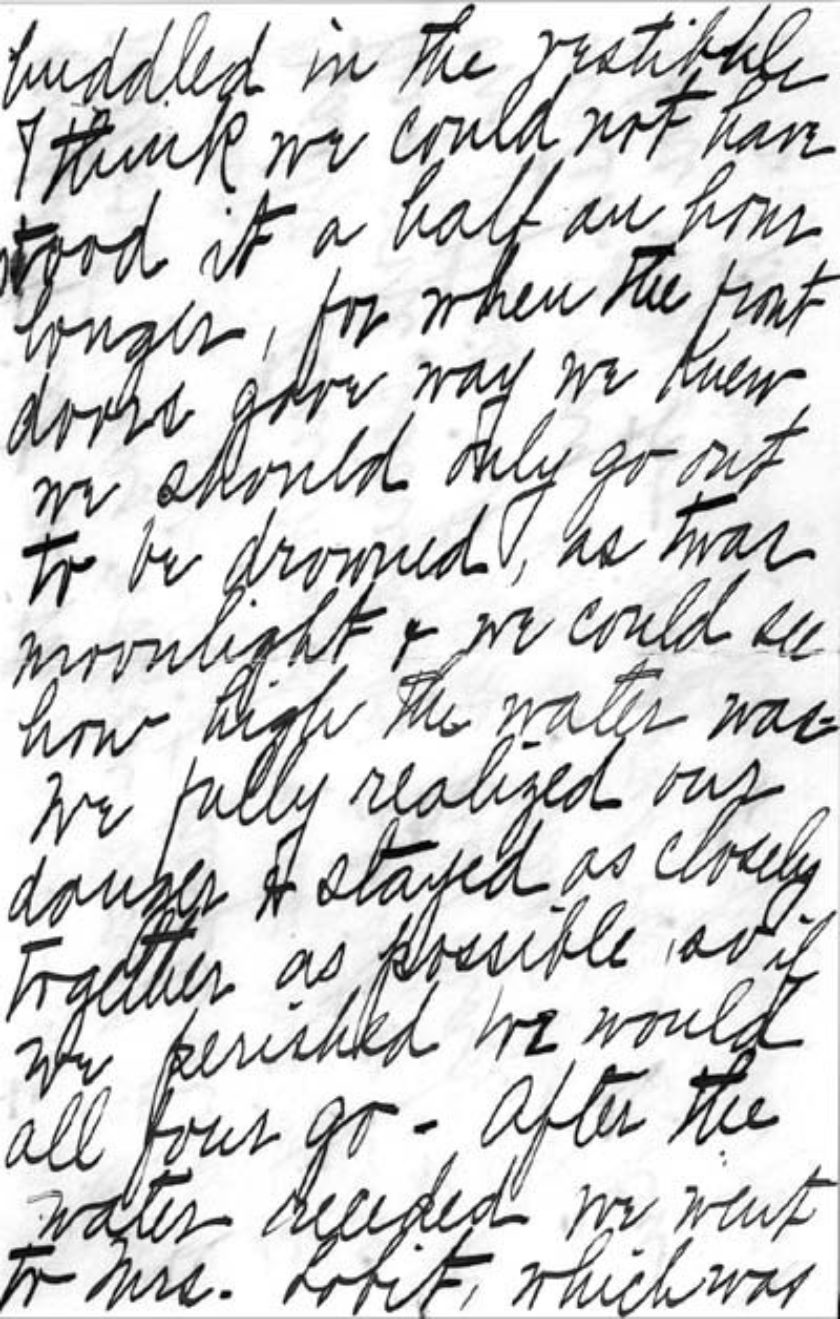 huddled in the vestibule
I think we could not have
stood it a half an hour
longer, for when the front
doors gave way we knew
we should only go out
to be drowned, as twas
moonlight & we could see
how high the water was
We fully realized our
danger & stayed as closely
together as possible, so if
we perished we would
all four go - After the
water receeded we went
to Mrs. Lobit, which was